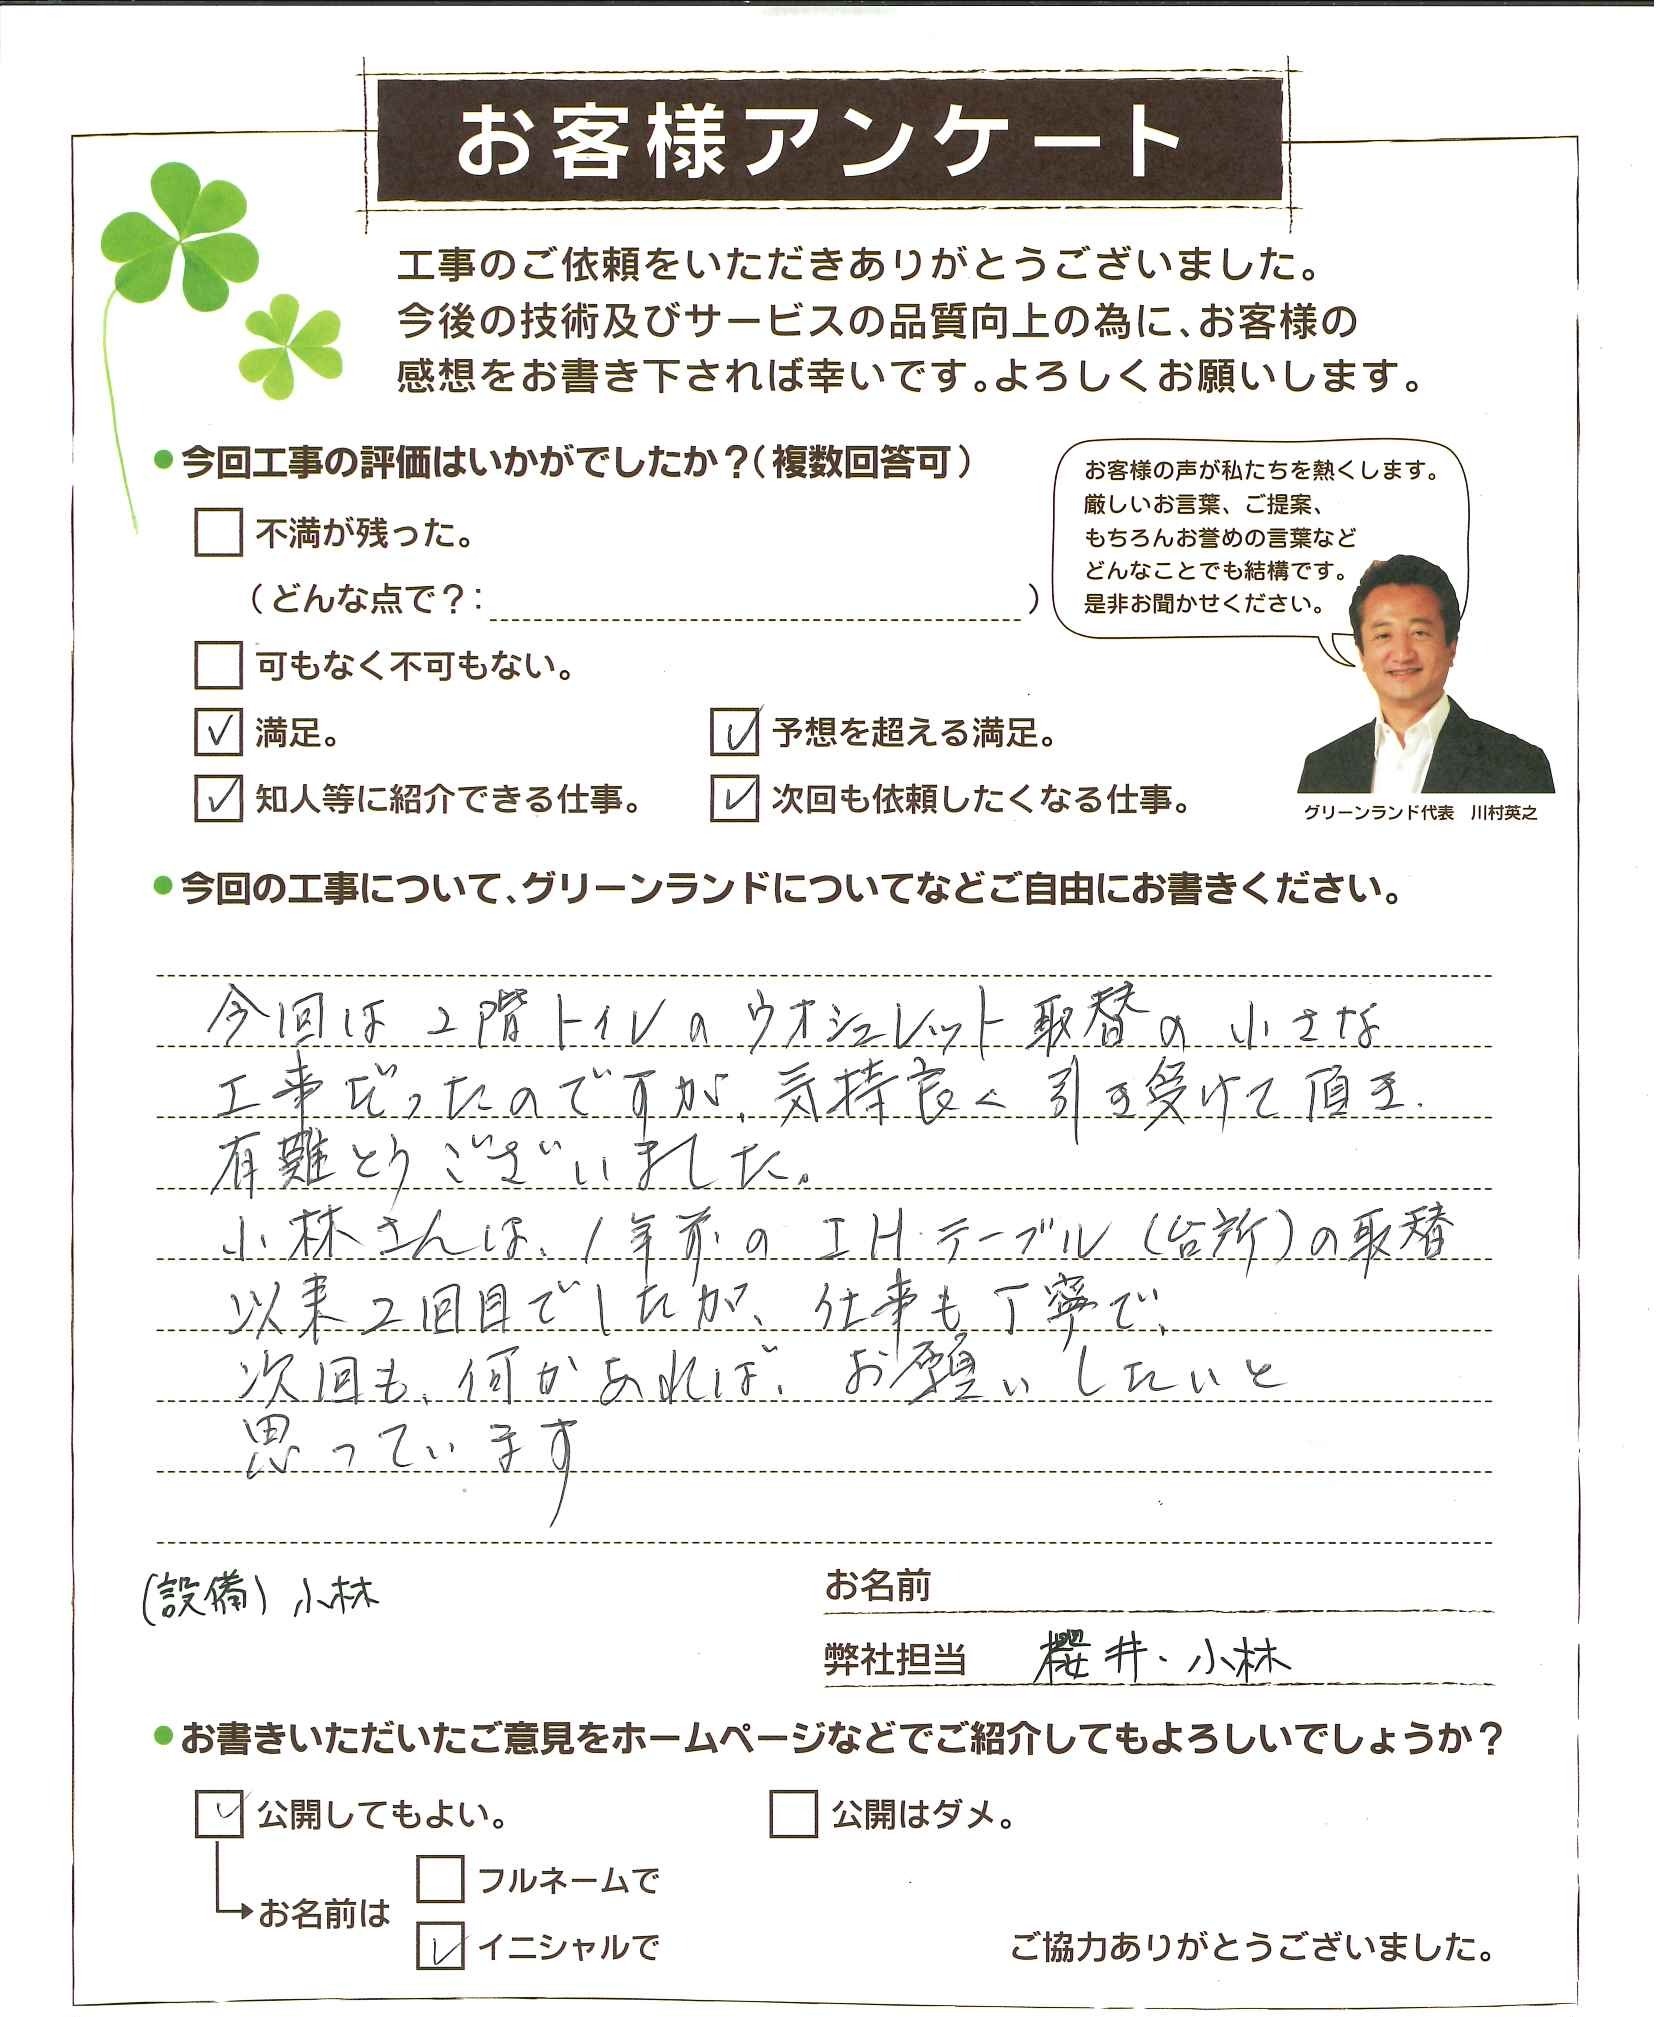 お客様アンケート
工事のご依頼をいただきありがとうございました。
今後の技術及びサービスの品質向上の為に、お客様の
感想をお書き下されば幸いです。よろしくお願いします。
今回工事の評価はいかがでしたか？(複数回答可)
お客様の声が私たちを熱くします。
厳しいお言葉、ご提案、
もちろんお誉めの言葉など
どんなことでも結構です。
是非お聞かせください。
グリーンランド代表 川村英之
不満が残った。
(どんな点で？: )
可もなく不可もない。
満足。 予想を超える満足。
知人等に紹介できる仕事。 次回も依頼したくなる仕事。
今回の工事について、グリーンランドについてなどご自由にお書きください。
今回は2階トイレのウオシュレット取替の小さな
工事だったのですが、気持良く引き受けて頂き
有難とうございました。
小林さんは、1年前のIHテーブル(台所)の取替
以来2回目でしたが、仕事も丁寧で、
次回も、何かあれば、お願いしたいと
思っています
(設備) 小林
お名前
弊社担当 櫻井・小林
お書きいただいたご意見をホームページなどでご紹介してもよろしいでしょうか？
公開してもよい。 公開はダメ。
お名前は
フルネームで
イニシャルで
ご協力ありがとうございました。